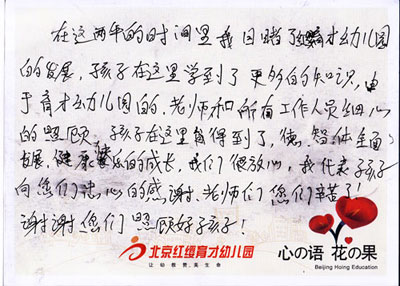 在这两年的时间里我目睹了红缨育才幼儿园
的发展,孩子在这里学到了更多的知识,由
于育才幼儿园的.老师和所有工作人员细心
的照顾、孩子在这里得到了,德.智体全面
发展,健康快乐的成长,我们很放心,我代表孩子
向您们忠心的感谢.老师们您们辛苦了!
谢谢您们照顾好孩子!
北京红缨育才幼儿园
心の语 花の果
Beijing Hoing Education